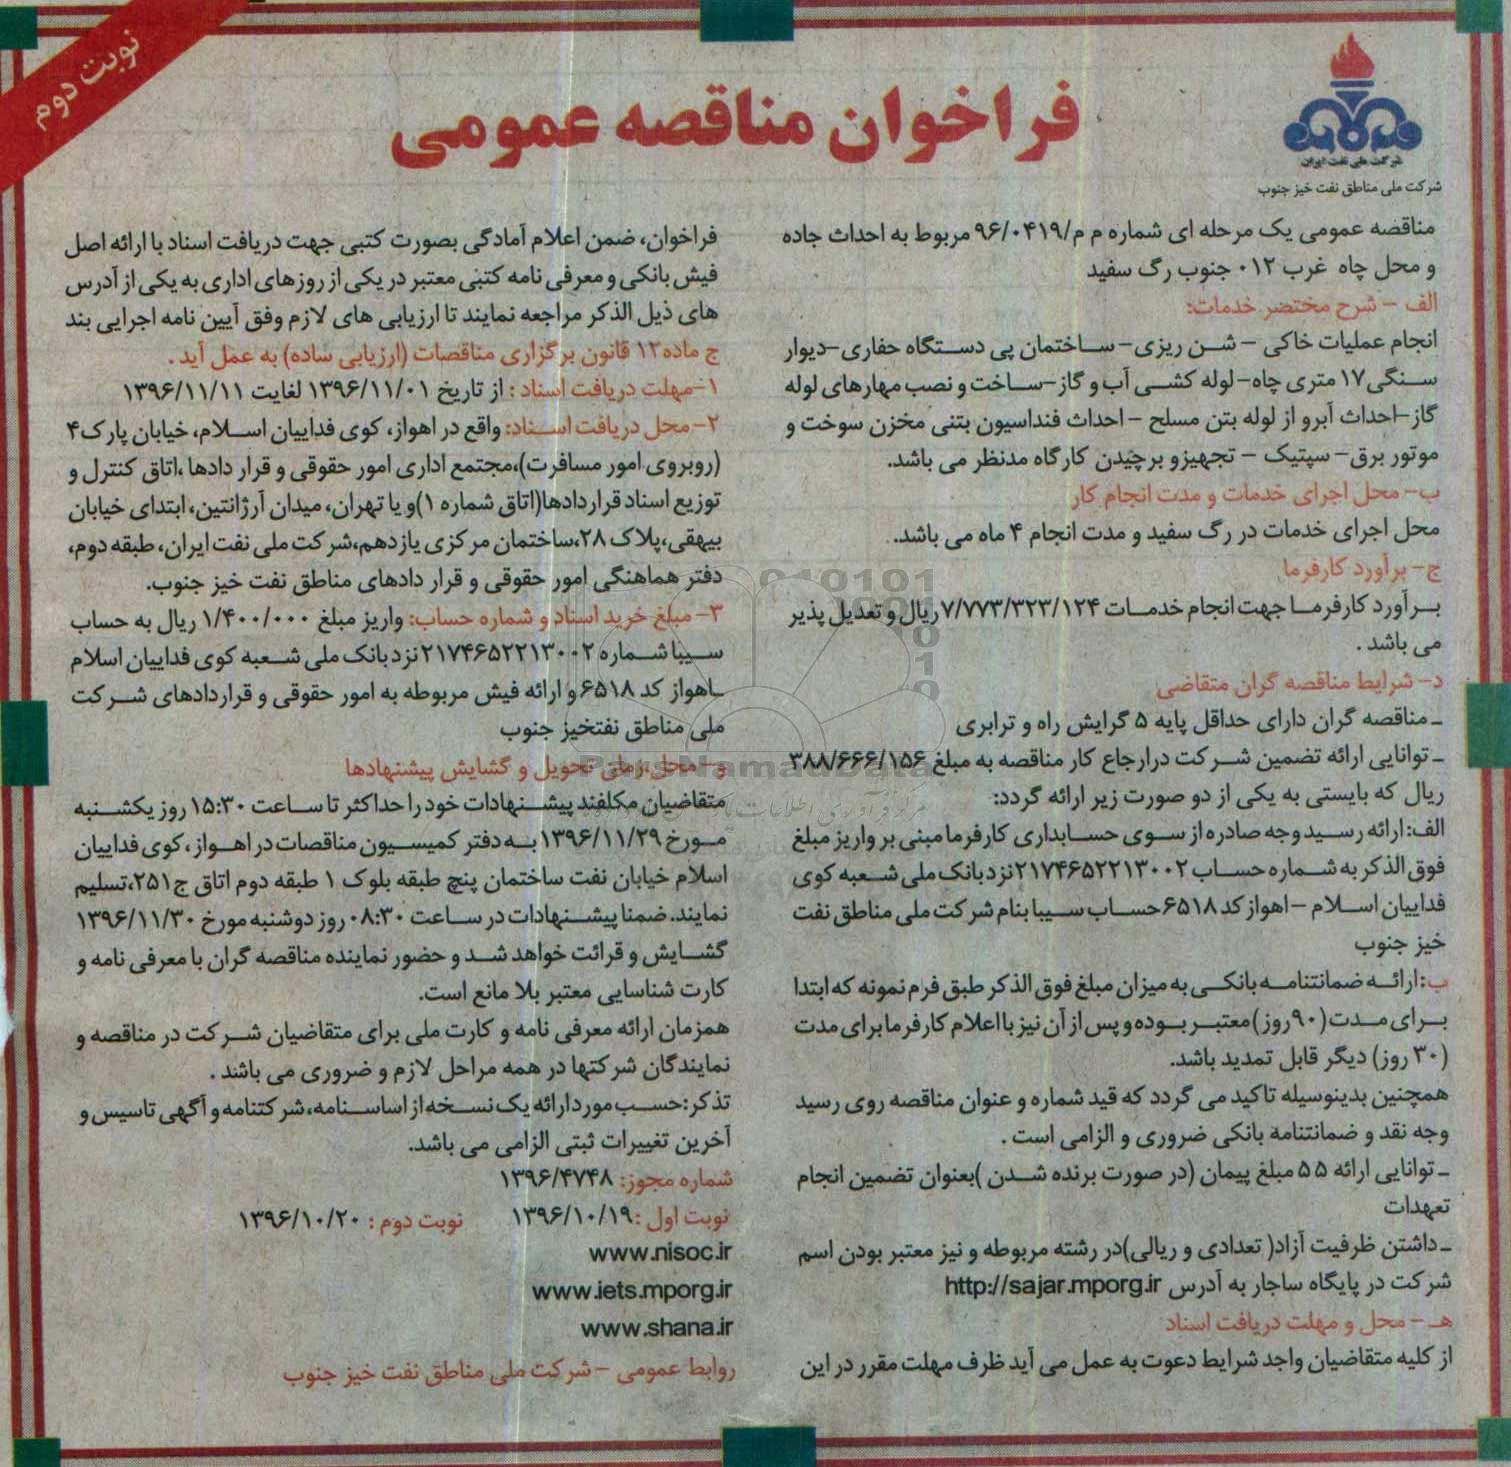 نوبت دوم
فراخوان مناقصه عمومی
شرکت ملی نفت ایران
شرکت ملی مناطق نفت خیز جنوب
مناقصه عمومی یک مرحله ای شماره م م/۹۶/۰۴۱۹ مربوط به احداث جاده
و محل چاه غرب ۰۱۲ جنوب رگ سفید
الف - شرح مختصر خدمات:
انجام عملیات خاکی - شن ریزی- ساختمان پی دستگاه حفاری-دیوار
سنگی۱۷ متری چاه-لوله کشی آب و گاز-ساخت و نصب مهارهای لوله
گاز-احداث آبرو از لوله بتن مسلح - احداث فنداسیون بتنی مخزن سوخت و
موتور برق- سپتیک - تجهیزو برچیدن کارگاه مدنظر می باشد.
ب- محل اجرای خدمات و مدت انجام کار
محل اجرای خدمات در رگ سفید و مدت انجام ۴ ماه می باشد.
ج- برآورد کارفرما
برآورد کارفرما جهت انجام خدمات ۷/۷۷۳/۳۲۳/۱۲۴ریال و تعدیل پذیر
می باشد .
د- شرایط مناقصه گران متقاضی
ـ مناقصه گران دارای حداقل پایه ۵ گرایش راه و ترابری
ـ توانایی ارائه تضمین شرکت درارجاع کار مناقصه به مبلغ ۳۸۸/۶۶۶/۱۵۶
ریال که بایستی به یکی از دو صورت زیر ارائه گردد:
الف:ارائه رسید وجه صادره از سوی حسابداری کارفرما مبنی بر واریز مبلغ
فوق الذکر به شماره حساب ۲۱۷۴۶۵۲۲۱۳۰۰۲نزد بانک ملی شعبه کوی
فداییان اسلام - اهواز کد ۶۵۱۸حساب سیبا بنام شرکت ملی مناطق نفت
خیز جنوب
ب:ارائه ضمانتنامه بانکی به میزان مبلغ فوق الذکر طبق فرم نمونه که ابتدا
برای مدت(۹۰روز)معتبر بوده و پس از آن نیز بااعلام کارفرما برای مدت
(۳۰ روز) دیگر قابل تمدید باشد.
همچنین بدینوسیله تاکید می گردد که قید شماره و عنوان مناقصه روی رسید
وجه نقد و ضمانتنامه بانکی ضروری و الزامی است .
ـ توانایی ارائه ۵۵ مبلغ پیمان (در صورت برنده شدن )بعنوان تضمین انجام
تعهدات
ـ داشتن ظرفیت آزاد( تعدادی و ریالی)در رشته مربوطه و نیز معتبر بودن اسم
شرکت در پایگاه ساجار به آدرس http://sajar.mporg.ir
هـ - محل و مهلت دریافت اسناد
از کلیه متقاضیان واجد شرایط دعوت به عمل می آید ظرف مهلت مقرر در این
فراخوان، ضمن اعلام آمادگی بصورت کتبی جهت دریافت اسناد با ارائه اصل
فیش بانکی و معرفی نامه کتبی معتبر در یکی از روزهای اداری به یکی از آدرس
های ذیل الذکر مراجعه نمایند تا ارزیابی های لازم وفق آیین نامه اجرایی بند
ج ماده۱۲ قانون برگزاری مناقصات (ارزیابی ساده) به عمل آید .
۱-مهلت دریافت اسناد : از تاریخ ۱۳۹۶/۱۱/۰۱ لغایت ۱۳۹۶/۱۱/۱۱
۲- محل دریافت اسناد: واقع در اهواز، کوی فداییان اسلام، خیابان پارک۴
(روبروی امور مسافرت)،مجتمع اداری امور حقوقی و قرار دادها ،اتاق کنترل و
توزیع اسناد قراردادها(اتاق شماره ۱)و یا تهران، میدان آرژانتین، ابتدای خیابان
بیهقی،پلاک ۲۸،ساختمان مرکزی یازدهم،شرکت ملی نفت ایران، طبقه دوم،
دفتر هماهنگی امور حقوقی و قرار دادهای مناطق نفت خیز جنوب.
۳- مبلغ خرید اسناد و شماره حساب: واریز مبلغ ۱/۴۰۰/۰۰۰ ریال به حساب
سیبا شماره ۲۱۷۴۶۵۲۲۱۳۰۰۲ نزد بانک ملی شعبه کوی فداییان اسلام
ـاهواز کد ۶۵۱۸ و ارائه فیش مربوطه به امور حقوقی و قراردادهای شرکت
ملی مناطق نفتخیز جنوب
و- محل،زمان تحویل و گشایش پیشنهادها
متقاضیان مکلفند پیشنهادات خود را حداکثر تا ساعت ۱۵:۳۰ روز یکشنبه
مورخ ۱۳۹۶/۱۱/۲۹ به دفتر کمیسیون مناقصات در اهواز ، کوی فداییان
اسلام خیابان نفت ساختمان پنج طبقه بلوک ۱ طبقه دوم اتاق ج۲۵۱،تسلیم
نمایند. ضمنا پیشنهادات در ساعت ۰۸:۳۰ روز دوشنبه مورخ ۱۳۹۶/۱۱/۳۰
گشایش و قرائت خواهد شد و حضور نماینده مناقصه گران با معرفی نامه و
کارت شناسایی معتبر بلا مانع است.
همزمان ارائه معرفی نامه و کارت ملی برای متقاضیان شرکت در مناقصه و
نمایندگان شرکتها در همه مراحل لازم و ضروری می باشد .
تذکر:حسب مورد ارائه یک نسخه از اساسنامه،شرکتنامه و آگهی تاسیس و
آخرین تغییرات ثبتی الزامی می باشد.
شماره مجوز: ۱۳۹۶/۴۷۴۸
نوبت اول :۱۳۹۶/۱۰/۱۹ نوبت دوم : ۱۳۹۶/۱۰/۲۰
www.nisoc.ir
www.iets.mporg.ir
www.shana.ir
روابط عمومی - شرکت ملی مناطق نفت خیز جنوب